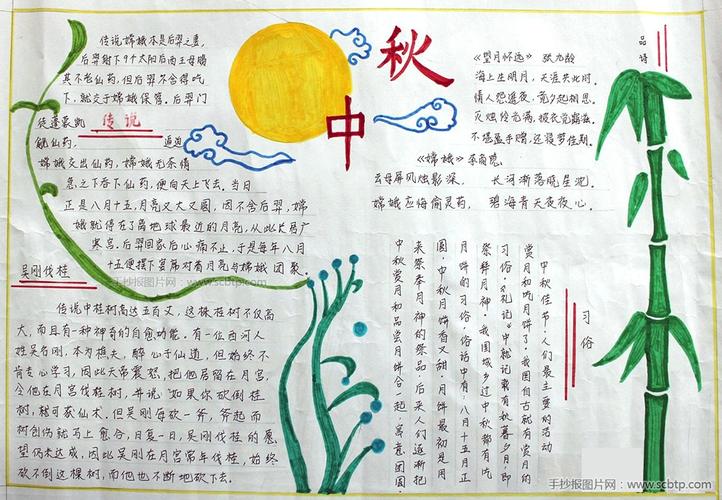 中
秋
传说嫦娥本是后羿之妻,
后羿射下9个太阳后西王母赐
其不老仙药,但后羿不舍得吃
下,就交于嫦娥保管。后羿门
徒蓬蒙觊
传说
觎仙药,
逼迫
嫦娥交出仙药,嫦娥无奈情
急之下吞下仙药,便向天上飞去。当日
正是八月十五,月亮又大又圆,因不舍后羿,嫦
娥就停在了离地球最近的月亮,从此长居广
寒宫。后羿回家后心痛不止,于是每年八月
十五便摆下宴席对着月亮与嫦娥团聚。
吴刚伐桂
传说中桂树高达五百丈,这株桂树不仅高
大,而且有一种神奇的自愈功能。有一位西河人
姓吴名刚,本为樵夫,醉心于仙道,但始终不
肯专心学习,因此天帝震怒,把他居留在月宫,
令他在月宫伐桂树,并说“如果你砍倒桂
树,就可获仙术。但吴刚每砍一斧,斧起而
树创伤就马上愈合,日复一日,吴刚伐桂的愿
望仍未达成,因此吴刚在月宫常年伐桂,始终
砍不倒这棵树,而他也不断地砍下去。
品诗
《望月怀远》 张九龄
海上生明月,天涯共此时。
情人怨遥夜,竟夕起相思。
灭烛怜光满,披衣觉露滋。
不堪盈手赠,还寝梦佳期。
《嫦娥》李商隐
云母屏风烛影深,长河渐落晓星沉。
嫦娥应悔偷灵药,碧海青天夜夜心。
习俗
中秋佳节,人们最主要的活动
赏月和吃月饼了。我国自古就有赏月的
习俗,《礼记》中就记载有秋暮夕月,即
祭拜月神。我国城乡过中秋都有吃
月饼的习俗,俗话中有:八月十五月正
圆,中秋月饼香又甜。月饼最初是用
来祭奉月神的祭品,后来人们逐渐把
中秋赏月和品尝月饼合一起,寓意团圆。
手抄报图片网·www.scbtp.com
手抄报图片网·www.scbtp.com